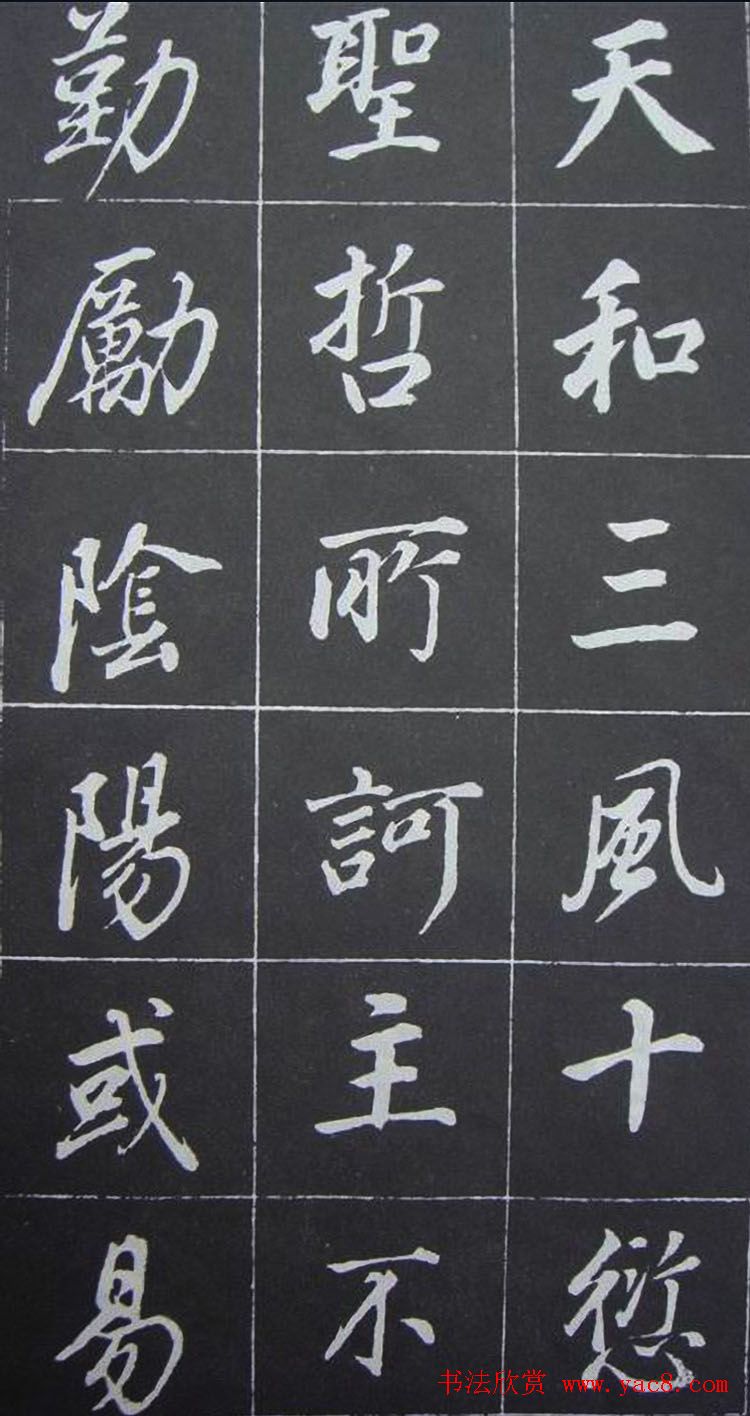 天和三風十愆
聖哲所訶主不
勤勵陰陽或易
书法欣赏 www.yac8.com